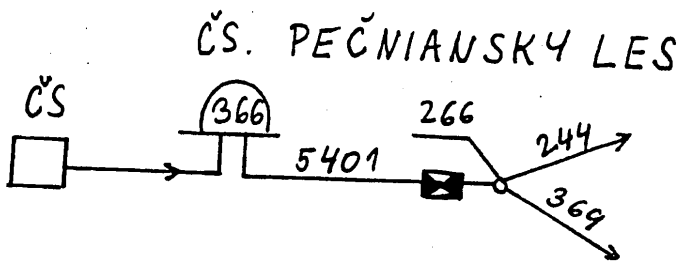 ČS. PEČNIANSKY LES
ČS
366
5401
266
244
369